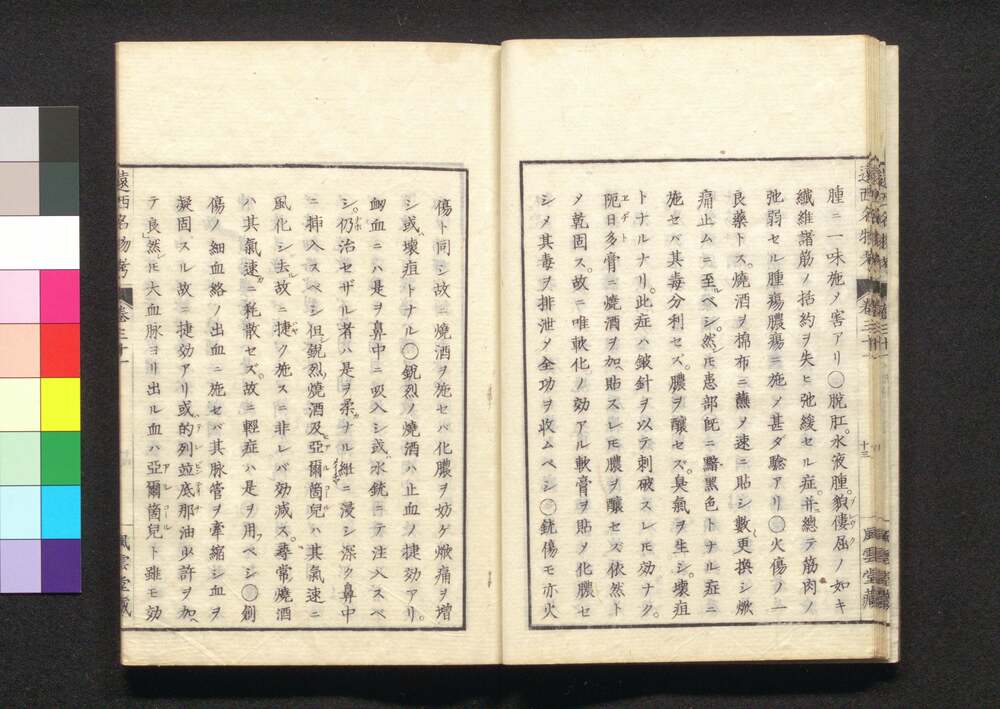 腫ニ一味施メ害アリ〇脱肛。水液腫。貌僂屈ノ如キ
繊維諸筋ノ括約ヲ失ヒ弛緩セル症。并總テ筋肉ノ
弛弱セル腫瘍膿瘍ニ施メ甚ダ驗アリ〇火傷ノ一
良藥トス。燒酒ヲ棉布ニ蘸メ速ニ貼シ數更換シ焮
痛止ムニ至ルベシ。然ㇾ𪜈患部既ニ黯黑色トナル症ニ
施セバ其毒分利セズ。膿ヲ釀セズ。臭氣ヲ生シ。壞疽
トナルナリ。此症ハ鈹針ヲ以テ刺破スレ𪜈効ナク。
阨日多膏ニ燒酒ヲ加ヘ貼スレ𪜈膿ヲ釀セズ。依然ト
メ乾固ス。故ニ唯軟化ノ効アル軟膏ヲ貼メ化膿セ
シメ其毒ヲ排泄メ全功ヲ收ムベシ〇銃傷モ亦火
傷ト同シ故ニ燒酒ヲ施セバ化膿ヲ妨ゲ焮痛ヲ增
シ或ハ壞疽トナル〇銳烈ノ燒酒ハ止血ノ捷効アリ。
衂血ニハ是ヲ鼻中ニ吸入シ或ハ水銃ニテ注入スベ
シ。仍治セザル者ハ是ヲ柔ナル紙ニ浸シ深ク鼻中
ニ揷入スベシ但シ銳烈燒酒及亞爾箇兒ハ其氣速ニ
風化シ去ル故ニ捷ク施スニ非レバ効減ス。尋常燒酒
ハ其氣速カニ耗散セズ。故ニ輕症ハ是ヲ用フベシ〇創
傷ノ細血絡ノ出血ニ施セバ其脉管ヲ牽縮シ血ヲ
凝固スル故ニ捷効アリ或的列竝底那油少許ヲ加ヘ
テ良然ㇾ𪜈大血脉ヨリ出ル血ハ亞爾箇兒ト雖モ効
遠西名物考 卷三十一 風雲堂藏